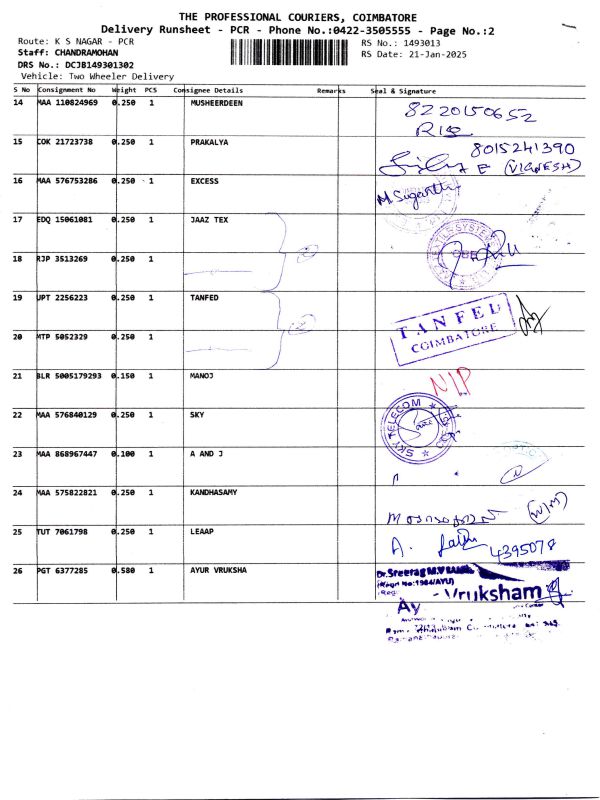 THE PROFESSIONAL COURIERS, COIMBATORE
Delivery Runsheet - PCR - Phone No.:0422-3505555 - Page No.:2
Route: K S NAGAR - PCR RS No.: 1493013
Staff: CHANDRAMOHAN RS Date: 21-Jan-2025
DRS No.: DCJB149301302
Vehicle: Two Wheeler Delivery
S No Consignment No Weight PCS Consignee Details Remarks Seal & Signature
14 MAA 110824969 0.250 1 MUSHEERDEEN 8220150652
15 COK 21723738 0.250 1 PRAKALYA 8015241390
E (VIGNESH)
16 MAA 576753286 0.250 1 EXCESS M Suganthi
17 EDQ 15061081 0.250 1 JAAZ TEX
18 RJP 3513269 0.250 1
19 UPT 2256223 0.250 1 TANFED TANFED
COIMBATORE
20 MTP 5052329 0.250 1
21 BLR 5005179293 0.150 1 MANOJ NIP
22 MAA 576840129 0.250 1 SKY SKY TELECOM
23 MAA 868967447 0.100 1 A AND J
24 MAA 575822821 0.250 1 KANDHASAMY
25 TUT 7061798 0.250 1 LEAAP A. 4395078
26 PGT 6377285 0.580 1 AYUR VRUKSHA Dr.Sreerag M.V
(Regn No:1984/AYU)
Vruksham
Ay